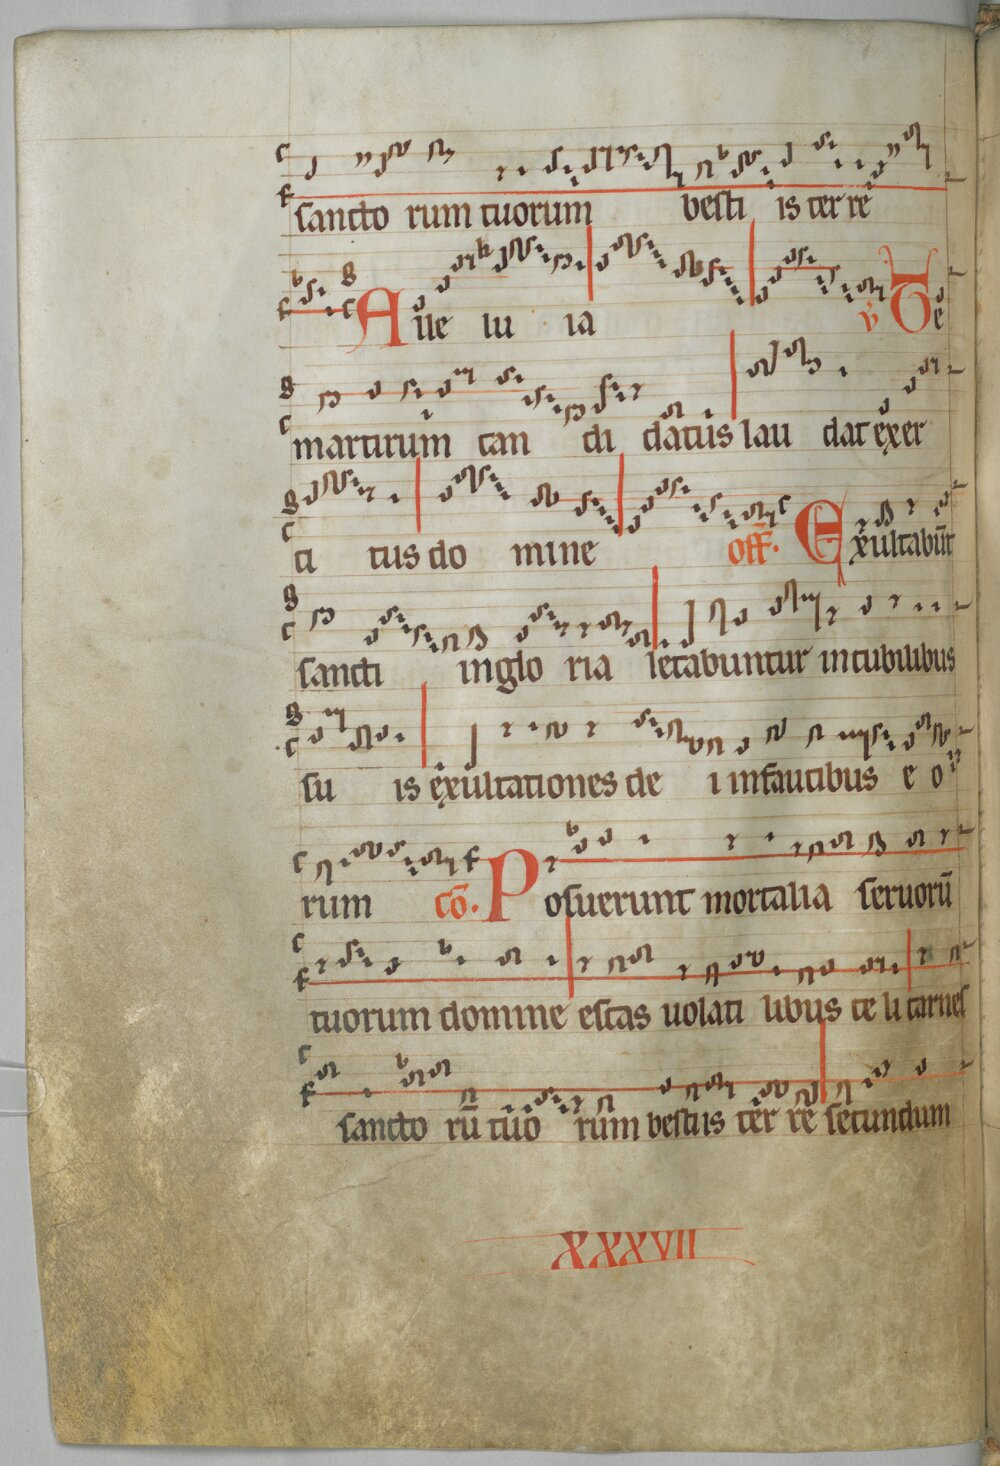 sancto rum tuorum besti is terre
Alle lu ia ℣ Te
martirum can di datus lau dat exer
ci tus do mine off. Exultabūt
sancti inglo ria letabuntur incubilibus
su is exultationes de i infaucibus e o
rum cō. Posuerunt mortalia seruorū
tuorum domine escas uolati libus celi carnes
sancto rū tuo rum bestiis ter re secundum
XXXVII